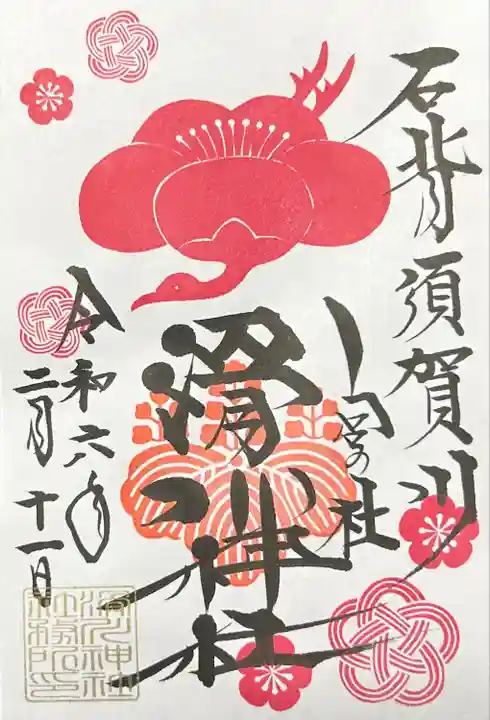 石背須賀川
宮の社
滑川神社
令和六年
二月十一日
滑川神社
社務所印